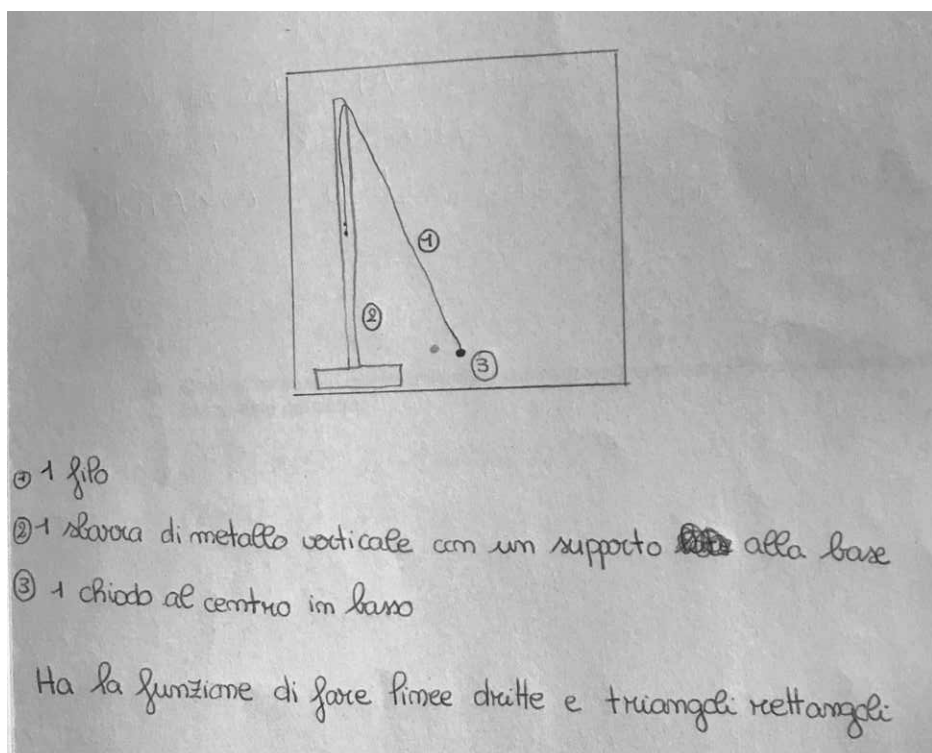 1
2
3
① 1 filo
② 1 sbarra di metallo verticale con un supporto alla base
③ 1 chiodo al centro in basso
Ha la funzione di fare linee dritte e triangoli rettangoli